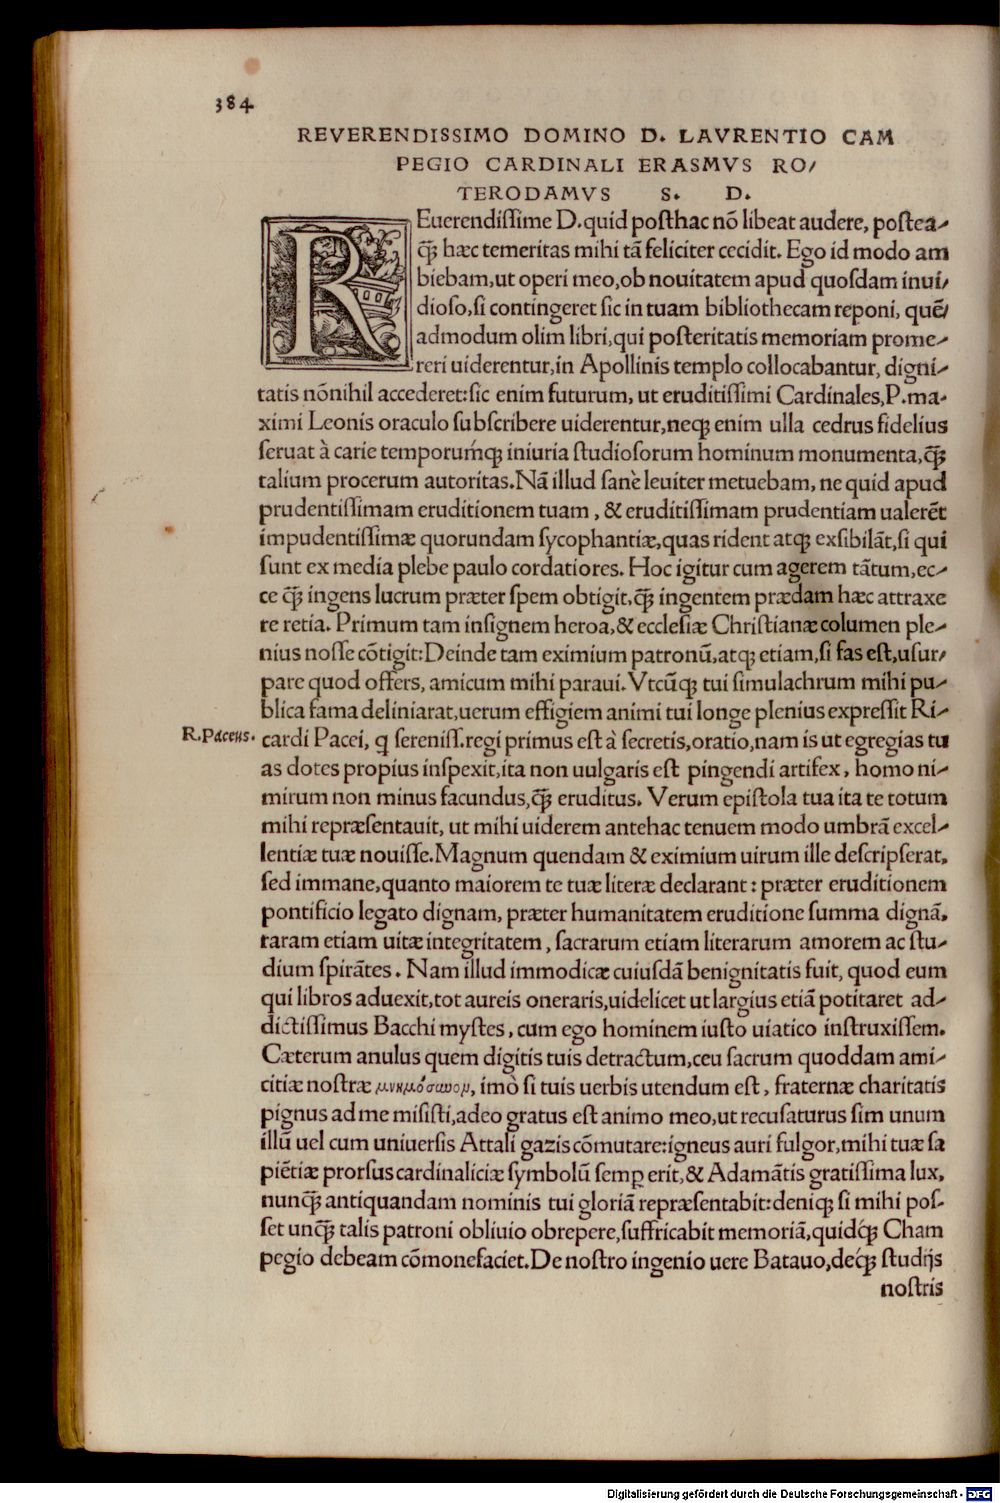 384
REVERENDISSIMO DOMINO D. LAVRENTIO CAM
PEGIO CARDINALI ERASMVS RO/
TERODAMVS S. D.
REuerendiſſime D. quid poſthac nõ libeat audere, poſtea-
q̃ hæc temeritas mihi tã feliciter cecidit. Ego id modo am
biebam, ut operi meo, ob nouitatem apud quoſdam inui/
dioſo, ſi contingeret ſic in tuam bibliothecam reponi, quẽ/
admodum olim libri, qui poſteritatis memoriam prome-
reri uiderentur, in Apollinis templo collocabantur, digni-
tatis nõnihil accederet: ſic enim futurum, ut eruditiſſimi Cardinales, P. ma-
ximi Leonis oraculo ſubſcribere uiderentur, neqꝫ enim ulla cedrus fidelius
ſeruat à carie temporumqꝫ́ iniuria ſtudioſorum hominum monumenta, q̃ꝫ
talium procerum autoritas. Nã illud ſanè leuiter metuebam, ne quid apud
prudentiſſimam eruditionem tuam, & eruditiſſimam prudentiam ualerẽt
impudentiſſimæ quorundam ſycophantiæ, quas rident atqꝫ exſibilãt, ſi qui
ſunt ex media plebe paulo cordatiores. Hoc igitur cum agerem tãtum, ec-
ce q̃ꝫ ingens lucrum præter ſpem obtigit, q̃ꝫ ingentem prædam hæc attraxe
re retia. Primum tam inſignem heroa, & eccleſiæ Chriſtianæ columen ple-
nius noſſe cõtigit: Deinde tam eximium patronũ, atqꝫ etiam, ſi fas eſt, uſur/
pare quod offers, amicum mihi paraui. Vtcũqꝫ tui ſimulachrum mihi pu-
blica fama deliniarat, uerum effigiem animi tui longe plenius expreſſit Ri-
R. Paceus. cardi Pacei, q ſereniſſ. regi primus eſt à ſecretis, oratio, nam is ut egregias tu
as dotes propius inſpexit, ita non uulgaris eſt pingendi artifex, homo ni-
mirum non minus facundus, q̃ꝫ eruditus. Verum epiſtola tua ita te totum
mihi repræſentauit, ut mihi uiderem antehac tenuem modo umbrã excel-
lentiæ tuæ nouiſſe. Magnum quendam & eximium uirum ille deſcripſerat,
ſed immane, quanto maiorem te tuæ literæ declarant: præter eruditionem
pontificio legato dignam, præter humanitatem eruditione ſumma dignã,
raram etiam uitæ integritatem, ſacrarum etiam literarum amorem ac ſtu-
dium ſpirãtes. Nam illud immodicæ cuiuſdã benignitatis fuit, quod eum
qui libros aduexit, tot aureis oneraris, uidelicet ut largius etiã potitaret ad-
dictiſſimus Bacchi myſtes, cum ego hominem iuſto uiatico inſtruxiſſem.
Cæterum anulus quem digitis tuis detractum, ceu ſacrum quoddam ami-
citiæ noſtræ μνημόσυνον, imò ſi tuis uerbis utendum eſt, fraternæ charitatis
pignus ad me miſiſti, adeo gratus eſt animo meo, ut recuſaturus ſim unum
illũ uel cum uniuerſis Attali gazis cõmutare: igneus auri fulgor, mihi tuæ ſa
piẽtiæ prorſus cardinaliciæ ſymbolũ ſemꝑ erit, & Adamãtis gratiſſima lux,
nunq̃ꝫ antiquandam nominis tui gloriã repræſentabit: deniqꝫ ſi mihi poſ-
ſet unq̃ꝫ talis patroni obliuio obrepere, ſuffricabit memoriã, quidq́ꝫ Cham
pegio debeam cõmonefaciet. De noſtro ingenio uere Batauo, deq́ꝫ ſtudijs
noſtris
Digitalisierung gefördert durch die Deutsche Forschungsgemeinschaft - DFG